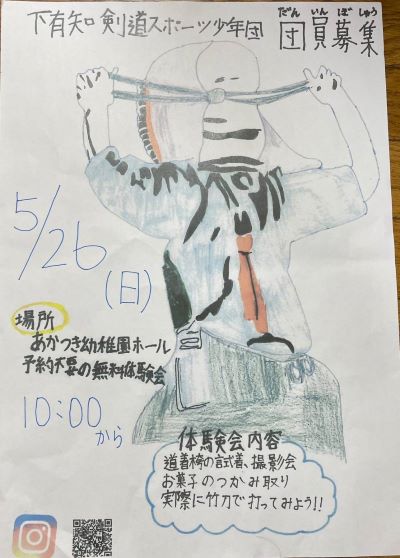 下有知剣道スポーツ少年団
だんいんぼしゅう
団員募集
5/26
(日)
場所
あかつき幼稚園ホール
予約不要の無料体験会
10:00
から
体験会内容
道着袴の試着、撮影会
お菓子のつかみ取り
実際に竹刀で打ってみよう!!